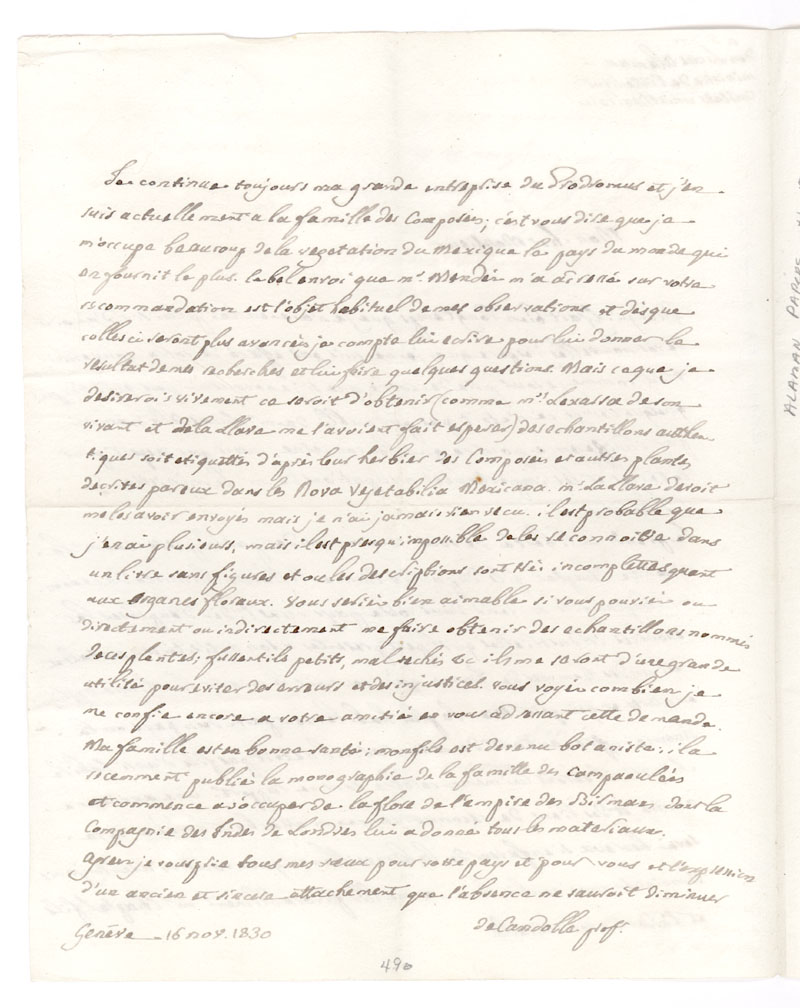 Je continue toujours ma grande entreprise du Prodromus et j'en
suis actuellement a la famille des Composées; c'est vous dire que je
m'occupe beaucoup de la vegetation du Mexique le pays du monde qui
en fournit le plus. le bel envoi que mr. Mendez m'a adressé sur votre
recommandation est l'objet habituel de mes observations et dès que
celles ci seront plus avancées je compte lui ecrire pour lui donner le
resultat de mes recherches et lui faire quelques questions. Mais ce que je
desirerois vivement ce seroit d'obtenir (comme mrs. Lexarsa de son
vivant et de la Llave me l'avoient fait esperer) des echantillons authen
tiques soit etiquettés d'après leur herbier des Composées et autres plantes
decrites par eux dans les Nova Vegetabilia Mexicana. mr. La Llave devoit
me les avoir envoyés mais je n'ai jamais rien recu. il est probable que
j'en ai plusieurs, mais il est presqu'impossible de les reconnoitre dans
un livre sans figures et ou les descriptions sont très incomplettes quant
aux organes floraux. Vous seriez bien aimable si vous pouviez ou
directement ou indirectement me faire obtenir des echantillons nommés
de ces plantes; fussent ils petits, mal sechés &c ils me seront d'une grande
utilité pour eviter des erreurs et des injustices. Vous voyez combien je
me confie encore a votre amitié en vous adressant cette demande.
Ma famille est en bonne santé; mon fils est devenu botaniste; il a
recemment publié la monographie de la famille des Campanulées
et commence a s'occuper de la flore de l'empire des Birmans dont la
Compagnie des Indes de Londres lui a donné tous les materiaux.
Agréez je vous prie tous mes vœux pour votre pays et pour vous et l'expression
d'un ancien et sincere attachement que l'absence ne sauroit diminuer
de Candolle prof.
Genève 16 nov. 1830
490
ALAMAN PAPERS